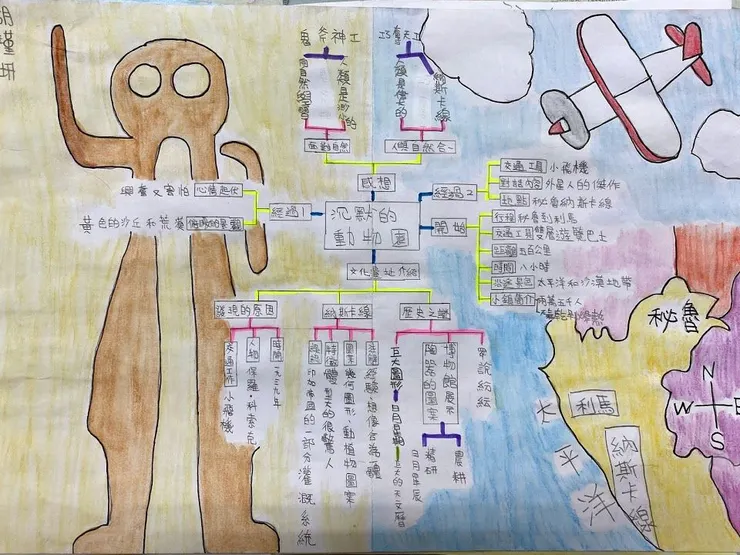 鬼斧神工
巧奪天工
人類是渺小的
納斯卡線
人類是偉大的
面對自然
人與自然合一
感想
沉默的
動物園
經過1
心情起伏
興奮又害怕
黃色的沙丘和荒漠
經過2
交通工具 小飛機
對話內容 外星人的傑作
地點 秘魯納斯卡線
開始
行程 秘魯到利馬
交通工具 雙層遊覽巴士
距離 五百公里
時間 八小時
沿途景色 太平洋和沙漠地帶
小鎮簡介 兩萬五千人
文化遺址介紹
發現的原因
時間 一九三九年
人物 保羅·科索克
交通工作 小飛機
納斯卡線
圖案 幾何圖形 動植物圖案
特徵 體型大的很驚人
印加帝國的一部分灌溉系統
歷史之謎
眾說紛紜
博物館展示
陶器的圖案
農耕
日月星辰
巨大圖形
日月星辰
巨大的天文曆
秘魯
利馬
納斯卡線
太平洋
N
W E
S